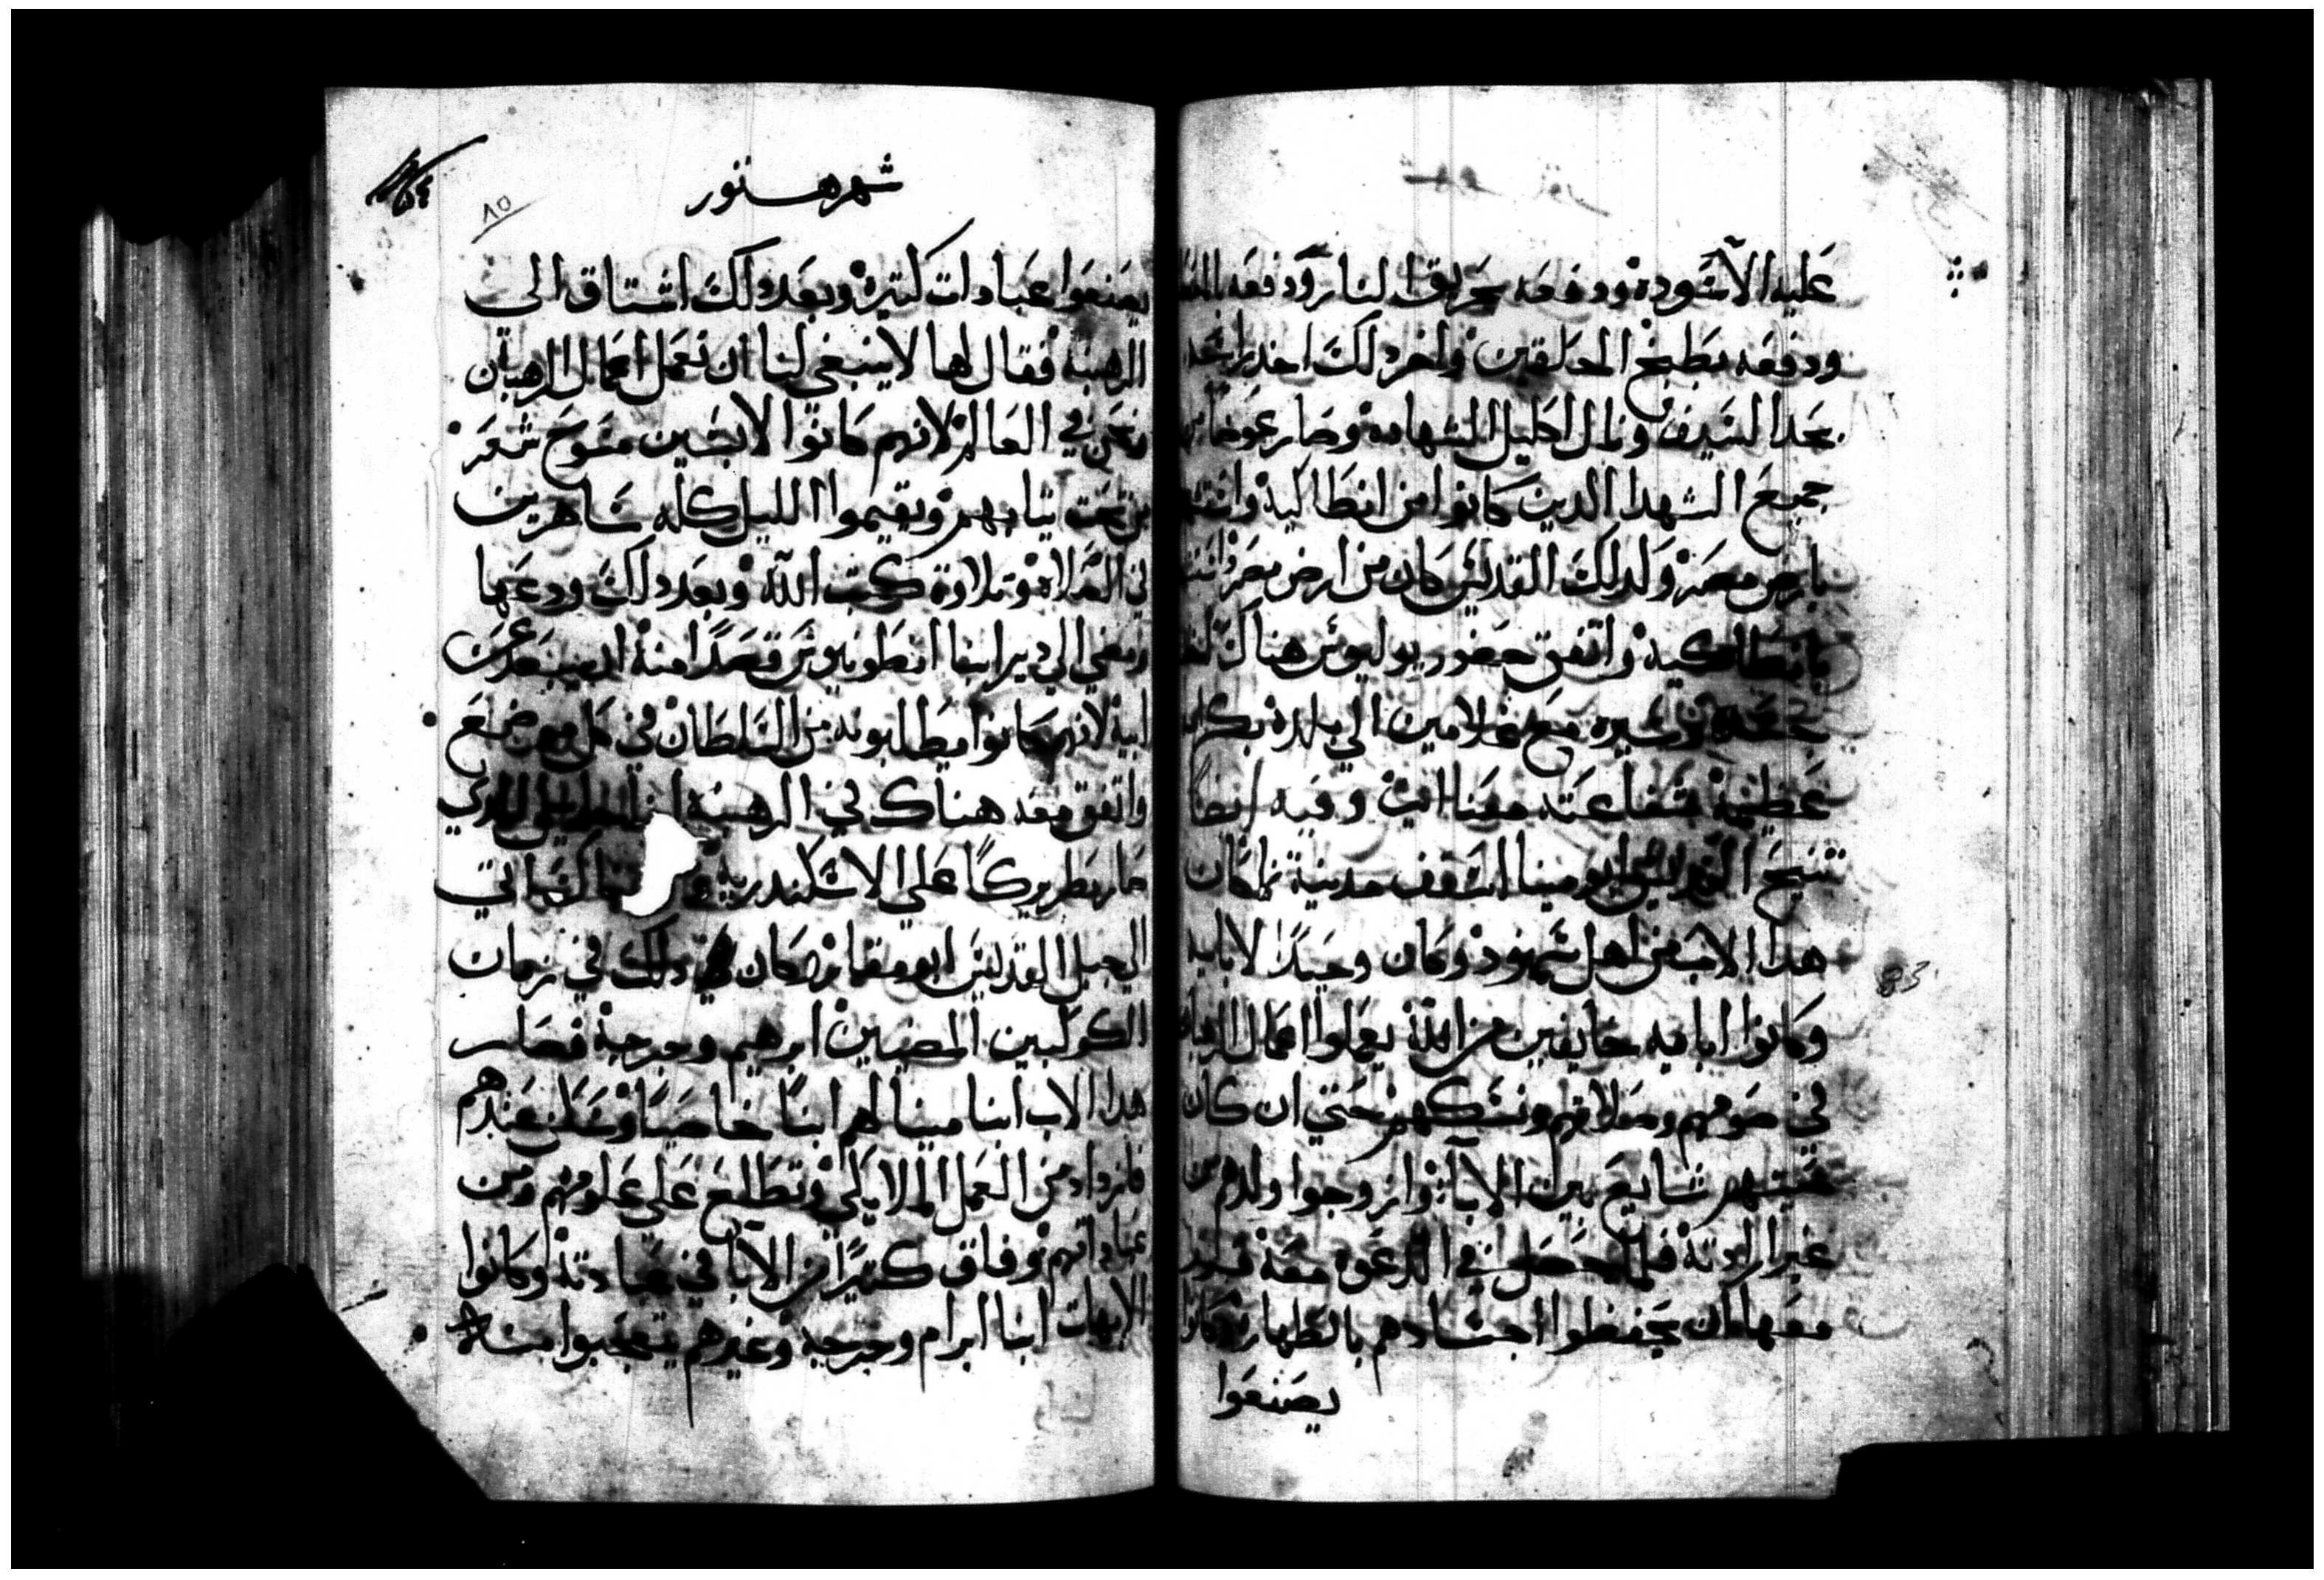 عليه الاسوده ودفعه بحريق النار ودفعه
ودفعه بطبخ الخلقين واخر ذلك اخد راسه
بحد السيف ونال اكليل الشهاده وصار عوضا
جميع الشهدا الدين كانوا من انطاكيه
بارض مصر ولدلك القديس كان من ارض مصر
بانطاكيه واتفق حضور يوليوس هناك
جسده وسيره مع غلامين الي بلده بكرامه
عظيمة شفاعته معنا امين وفيه ايضا
تنيح القديس ابو مينا اسقف مدينة تما كان
هدا الاب من اهل سمنود وكان وحيدا لابايه
وكانوا اباية خايفين من الله يعملوا اعمال الرهبان
في صومهم وصلاتهم ونسكهم حتي ان كان
شايع بين الابا وازوجوا ولدهم من
غير ارادته فلما حصل في
معها ان يحفظوا اجسادهم بالطهاره وكانوا
يصنعوا
شهر هتور
٨٥
يصنعوا عبادات كتيره وبعد دلك اشتاق الى
الرهبنه فقال لها لا ينبغي لنا ان نعمل اعمال الرهبان
ونحن في العالم لانهم كانوا لابسين مسوح شعر
من تحت تيابهم ويقيموا الليل كله ساهرين
في الصلاه وتلاوة كتب الله وبعد دلك ودعها
ومضي الي دير ابنا انطونيوس قصدا منه ان يبعد عن
ابيه لانهم كانوا يطالبونه من السلطان في كل موضع
واتفق معه هناك في الرهبنة الدي
صار بطريركا علي الاسكندرية
الي جبل القديس ابو مقار وكان دلك في زمان
الكوكبين المضيين ابرهيم وجرجه فصار
هدا الاب ابنا مينا لهم ابنا خاصيا وسكن عندهم
فازداد من العمل الملايكي وتطلع علي علومهم ومن
عباداتهم وفاق كتيرا من الابا في عبادته وكانوا
الابهات ابنا ابرام وجرجه وغيرهم يتعجبوا منه
83